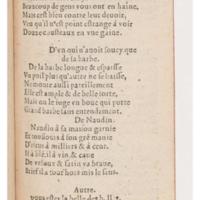 Beaucoup de gens vous ont en haine,
Mais c'est bien contre leur devoir,
Veu qu'il n'est point estrange à voir
Douze cousteaux en vne gaine.
D'vn qui n'auoit soucy que
de sa barbe.
De la barbe longue & espaisse
Ne moure aussi pareillement
Elle est ample & de belle sorte,
Mais on le iuge en bouc qui porte
Grand barbe sans entendement.
De Naudin.
Naudin a sa maison garnie
Et tousiours à son gré manie
D'escus à milliers & à cent.
Il a blé, il a vin & caue
De velours & satin se braue,
Brief il a tout hors mis le sens.
Autre.